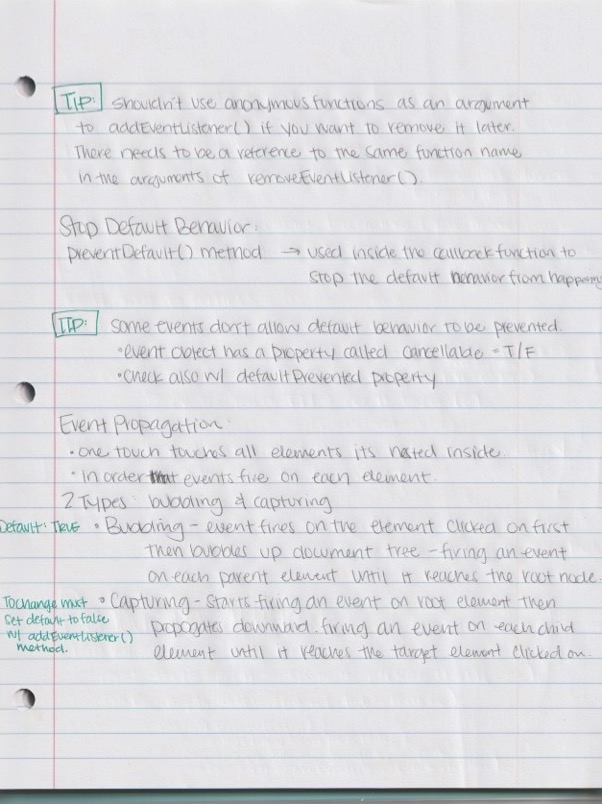 TIP: Shouldn't use anonymous functions as an argument
to addEventListener() if you want to remove it later.
There needs to be a reference to the same function name
in the arguments of removeEventListener().
Stop Default Behavior:
preventDefault() method → used inside the callback function to
stop the default behavior from happening
TIP: Some events don't allow default behavior to be prevented.
• event object has a property called cancellable - T/F
• Check also w/ defaultPrevented property
Event Propagation:
• one touch touches all elements its nested inside.
• in order that events fire on each element.
2 Types: bubbling & capturing
Default: TRUE • Bubbling - event fires on the element clicked on first
then bubbles up document tree - firing an event
on each parent element until it reaches the root node.
To change must • Capturing - starts firing an event on root element then
set default to false propogates downward. firing an event on each child
w/ addEventListener() element until it reaches the target element clicked on.
method.